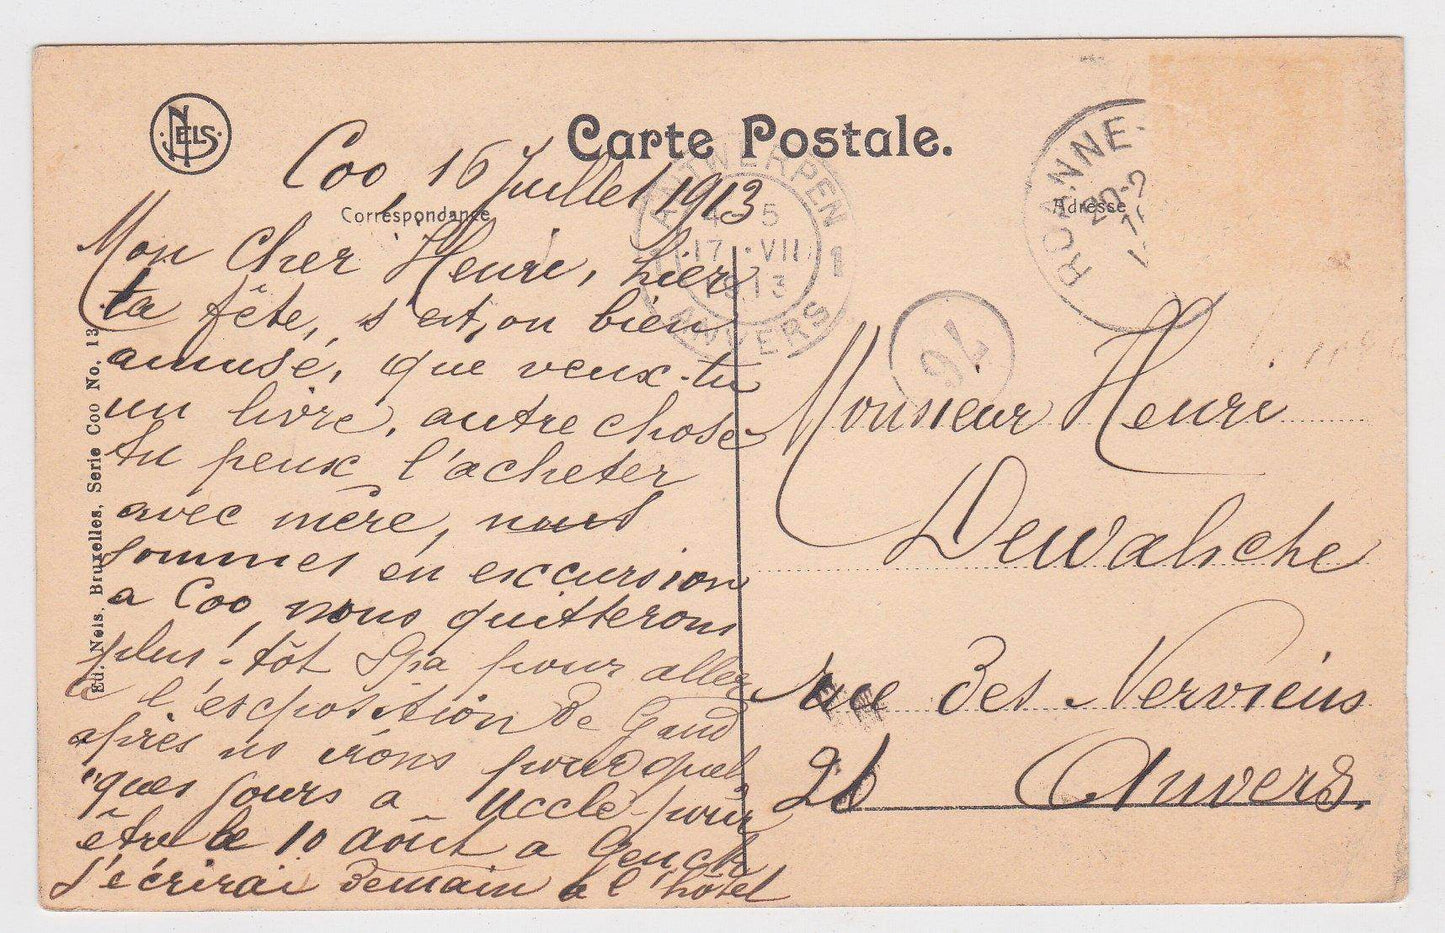 NELS
Carte Postale.
Correspondance
Adresse
Ed. Nels, Bruxelles, Serie Coo No. 13
Coo, 16 Juillet 1913
Mon cher Henri, hier
ta fête, s'est, on bien
amusé, que veux-tu
un livre, autre chose
tu peux l'acheter
avec mère, nous
sommes en excursion
a Coo, nous quitterons
plus-tôt Spa pour aller
a l'exposition de Gand
après ns irons pour quel
"ques jours a Uccle pour
être le 10 août a Genck
J'écrirai demain à l'hôtel
ANTWERPEN 1
4 5
17 VII
1913
ANVERS
ROANNE-
20-2
76
Monsieur Henri
Dewalsche
rue des Nerviens
26 Anvers.